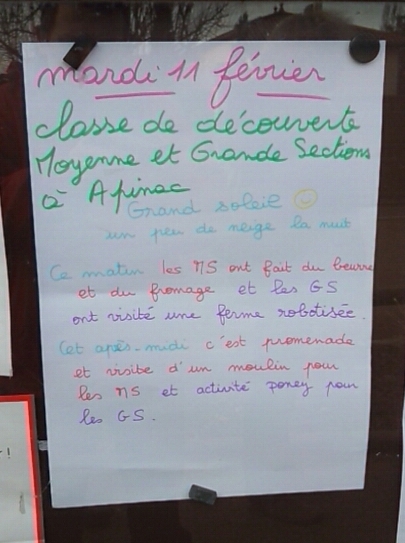 mardi 11 février
classe de découverte
Moyenne et Grande Sections
à Apinac
Grand soleil
un peu de neige la nuit
Ce matin les MS ont fait du beurre
et du fromage et les GS
ont visité une ferme robotisée.
Cet après-midi c'est promenade
et visite d'un moulin pour
les MS et activité poney pour
les GS.
!